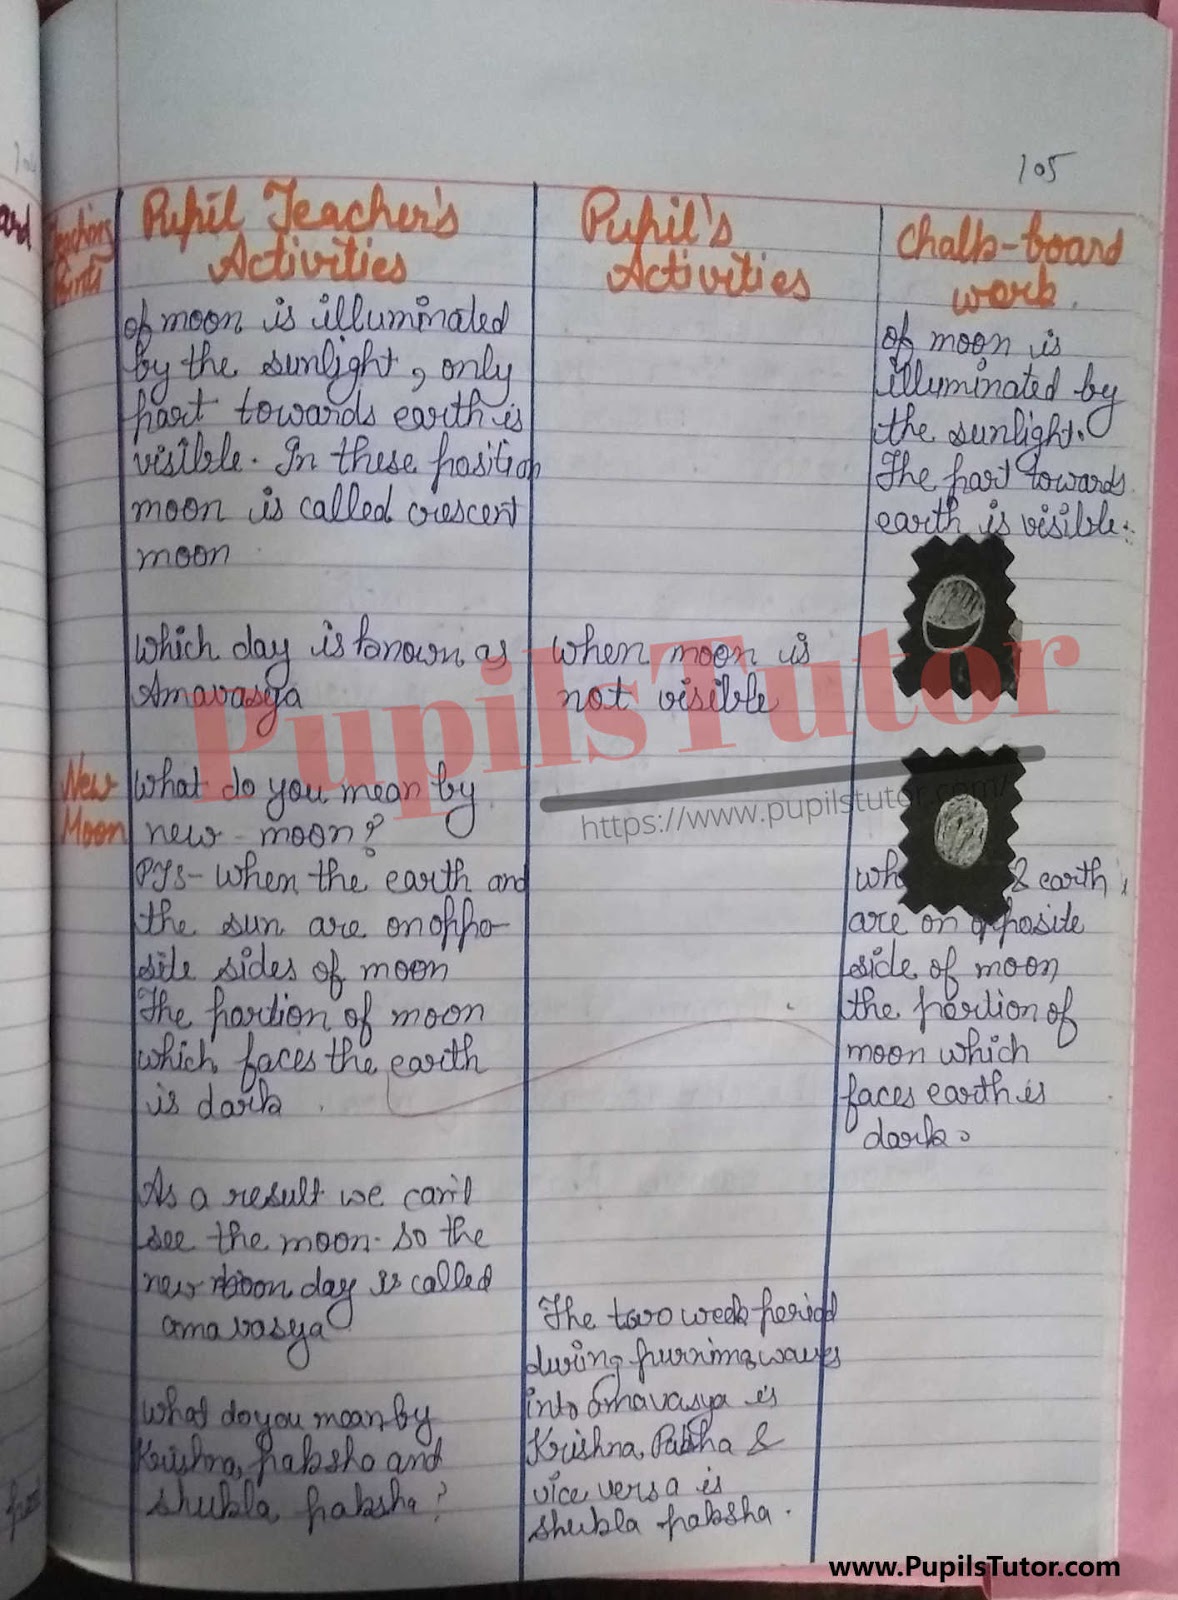 105
Teaching
Points
Pupil Teacher's
Activities
of moon is illuminated
by the sunlight, only
part towards earth is
visible. In these position
moon is called crescent
moon
Which day is known as
Amavasya
New
Moon
What do you mean by
new-moon?
PTS- When the earth and
the sun are on oppo-
site sides of moon
The portion of moon
which faces the earth
is dark.
As a result we can't
see the moon. so the
new moon day is called
amavasya
What do you mean by
Krishna paksha and
shukla paksha?
Pupil's
Activities
when moon is
not visible
The two week period
during
into amavasya is
Krishna Paksha &
vice versa is
shukla paksha.
Chalk-board
work.
of moon is
illuminated by
the sunlight.
The part towards
earth is visible.
wh & earth
are on opposite
side of moon
the portion of
moon which
faces earth is
dark.
PupilsTutor
https://www.pupilstutor.com/
www.PupilsTutor.com
ard